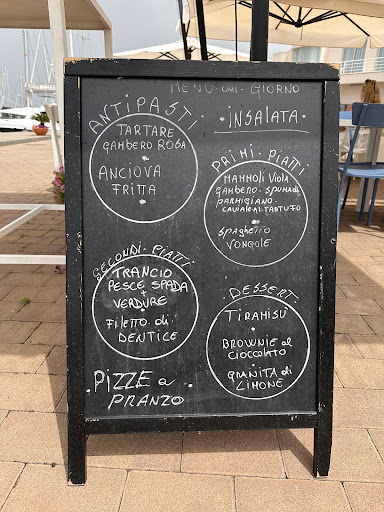 MENU DEL GIORNO
ANTIPASTI
TARTARE
GAMBERO ROSA
ANCIOVA
FRITTA
INSALATA
PRIMI PIATTI
MAMMOLI VIOLA
GAMBERO. SPUMA di
PARMIGIANO.
CAVIALE AL TARTUFO
SPAGHETTO
VONGOLE
SECONDI PIATTI
TRANCIO
PESCE SPADA
+
VERDURE
FILETTO di
DENTICE
DESSERT
TIRAMISÚ
BROWNIE al
CIOCCOLATO
GRANITA di
LIMONE
PIZZE a
PRANZO